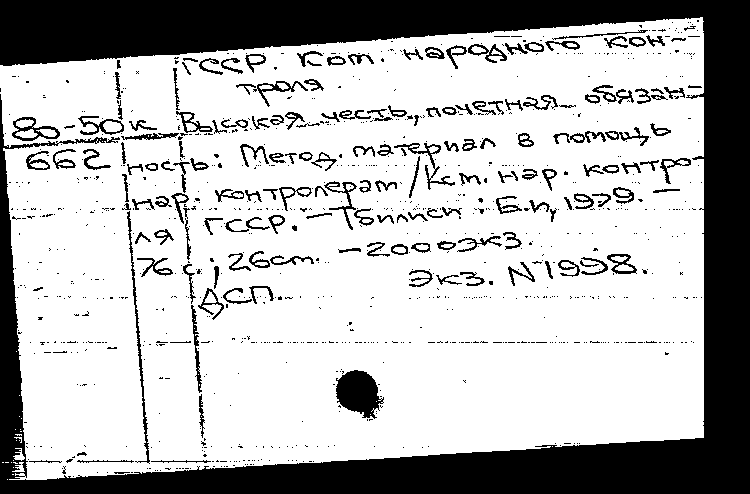 ГССР. Ком. народного кон-
троля.
80-50к Высокая честь, почетная обязан-
662 ность: Метод. материал в помощь
нар. контролерам / Ком. нар. контро-
ля ГССР. — Тбилиси : Б.и, 1979. —
76 с.; 26см. — 2000экз.
ДСП. Экз. N1998.